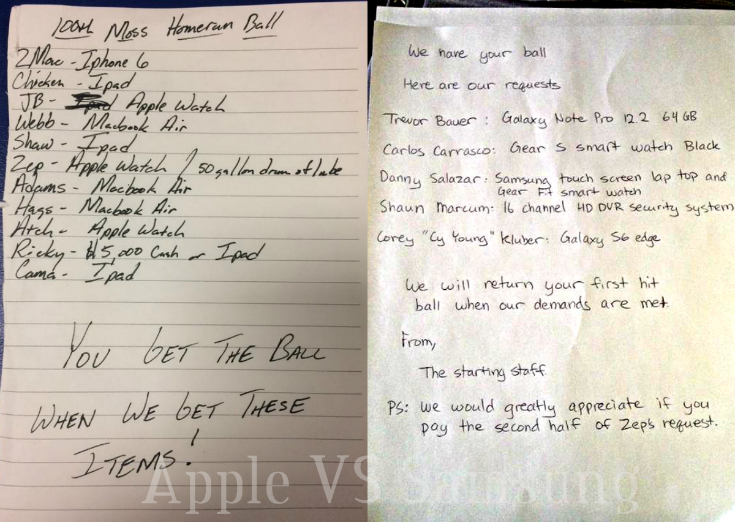 100th Moss Homerun Ball
2Mac - Iphone 6
Chicken - Ipad
JB - Ipad Apple Watch
Webb - Macbook Air
Shaw - Ipad
Zep - Apple Watch / 50 gallon drum of lube
Adams - Macbook Air
Hags - Macbook Air
Atch - Apple Watch
Ricky - $5,000 Cash or Ipad
Cama - Ipad
YOU GET THE BALL
WHEN WE GET THESE
ITEMS!
We have your ball
Here are our requests
Trevor Bauer : Galaxy Note Pro 12.2 64GB
Carlos Carrasco: Gear S smart watch Black
Danny Salazar: Samsung touch screen lap top and
Gear Fit smart watch
Shaun Marcum: 16 channel HD DVR security system
Corey "Cy Young" Kluber: Galaxy S6 edge
We will return your first hit
ball when our demands are met.
From,
The starting staff
PS: we would greatly appreciate if you
pay the second half of Zep's request.
Apple VS Samsung